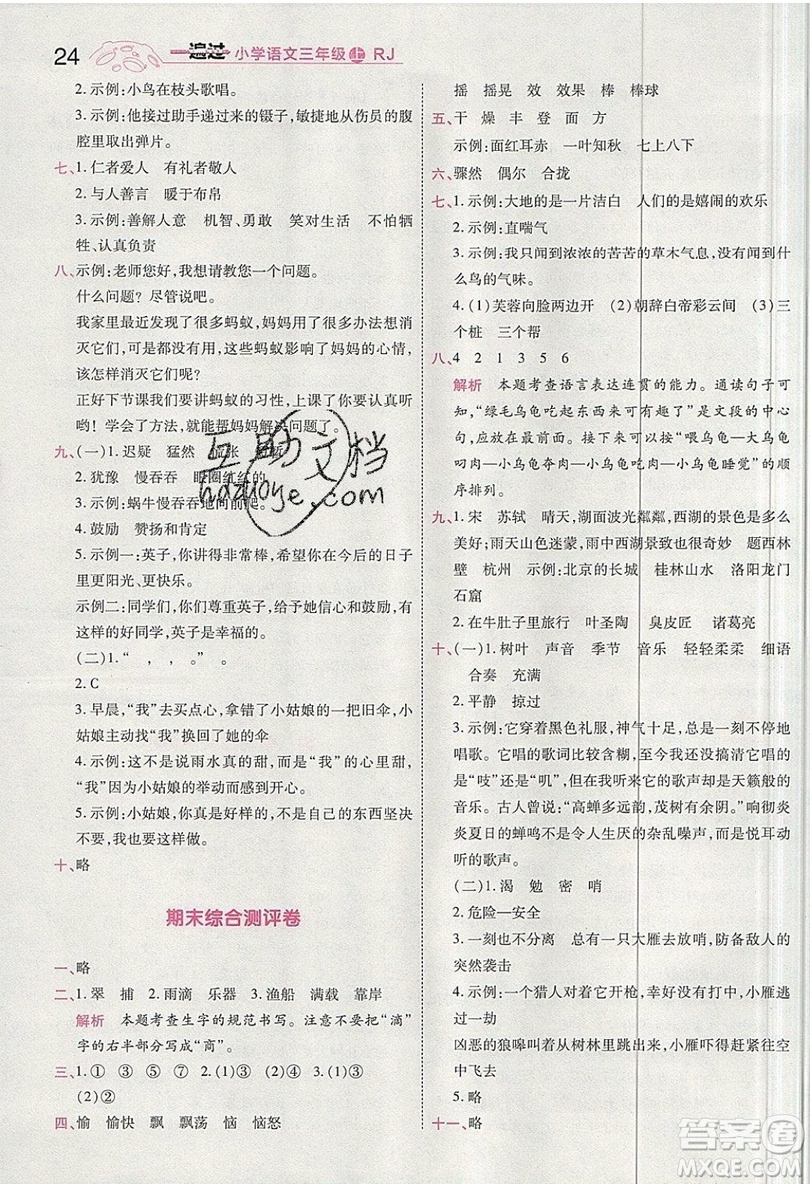 24 一遍过 小学语文三年级 上 RJ
2. 示例:小鸟在枝头歌唱。
3. 示例:他接过助手递过来的镊子,敏捷地从伤员的腹
腔里取出弹片。
七、1. 仁者爱人 有礼者敬人
2. 与人善言 暖于布帛
3. 示例:善解人意 机智、勇敢 笑对生活 不怕牺
牲、认真负责
八、示例:老师您好,我想请教您一个问题。
什么问题?尽管说吧。
我家里出现了很多蚂蚁,妈妈用了很多办法想消
灭它们,可是没有效果,这很影响妈妈的心情,我应
该怎样消灭它们呢?
正好下节课我们讲蚂蚁的习性,上课了你可认真听
哟!学会了方法,就能帮妈妈解决问题了。
九、(一)1. 迟疑 猛然 慌张
2. 犹豫 慢吞吞 眼圈红红的
3. 示例:蜗牛慢吞吞地向前爬。
4. 鼓励 赞扬和肯定
5. 示例一:英子,你讲得非常棒,希望你在今后的日子
里更阳光、更快乐!
示例二:同学们,你们尊重英子,给了她信心和鼓励,有
这样的好同学,英子是幸福的。
(二)1. “ , , 。”
2. C
3. 早晨,“我”去买点心,拿错了小姑娘的一把旧伞,小
姑娘又换回了她的伞
4. 示例:不是说雨水真的甜,而是“我”的心里甜,
“我”因为小姑娘的举动而感到开心。
5. 示例:小姑娘,你真有志气!不是自己的东西坚决
不要,我也要这样做。
十、略
期末综合测评卷
一、略
二、1. 翠 捕 2. 雨滴 乐器 3. 渔船 满载 靠岸
解析 本题考查生字的规范书写。注意不要把“滴”
字的右半部分写成“商”。
三、1. ① ③ ⑤ ⑦ 2. (1)① ② ③
(2)②
四、愉 愉快 飘 飘荡 恼 恼怒
摇 摇晃 效 效果 棒 棒球
五、干 燥 丰 登 面 方
示例:面红耳赤 一叶知秋 七上八下
六、骤然 偶尔 合拢
七、1. 示例:大地的是一片洁白 人们的是嬉闹的欢乐
2. 示例:直喘气
3. 示例:我只闻到浓浓的苦苦的草木气息,没闻到什
么鸟的气味。
4. (1)芙蓉向脸两边开 (2)朝辞白帝彩云间 (3)三
个桩 三个帮
八、4 2 1 3 5 6
解析 本题考查语言表达连贯的能力。通读句子可
知,“绿毛乌龟吃起东西来可有趣了”是文段的中心
句,应放在开头。再按照“喂乌龟吃肉—大乌龟
叼肉—小乌龟吃肉—大乌龟吃肉—小乌龟睡觉”的顺
序排列。
九、1. 宋 苏轼 晴天,湖面波光粼粼,西湖的景色是多么
美好;雨天山色迷蒙,西湖景致也很奇妙 题西林
壁 杭州 示例:北京的长城 桂林山水 洛阳龙门
石窟
2. 在牛肚子里旅行 叶圣陶 臭皮匠 诸葛亮
十、(一)1. 树叶 声音 季节 音乐 轻轻柔柔 细语
合奏 充满
2. 平静 掠过
3. 示例:它穿着黑色礼服,神气十足,总是一刻不停地
唱歌。它唱的歌词比较含糊,至今我还没有弄清楚到底
是“吱”还是“叽”。但我听来它的歌声却是天籁般的
音乐。古人曾言:“高蝉多远韵,茂树有余阴。”我觉得炎
炎夏日的蝉鸣不是令人生厌的杂乱噪声,而是悦耳动
听的歌声。
(二)1. 渴 勉 密 哨
2. 危险—安全
3. 一刻也不分开 总有一只大雁去放哨 防备敌人的
突然袭击
4. 示例:一个猎人对着它们举起了枪。 小雁逃
过一劫
凶恶的狼嗥叫着从树林里跳出来 小雁嗖的一声向空
中飞去
5. 略
十一、略
互助文档
hdzuoye.com
答案圈
MXQE.COM